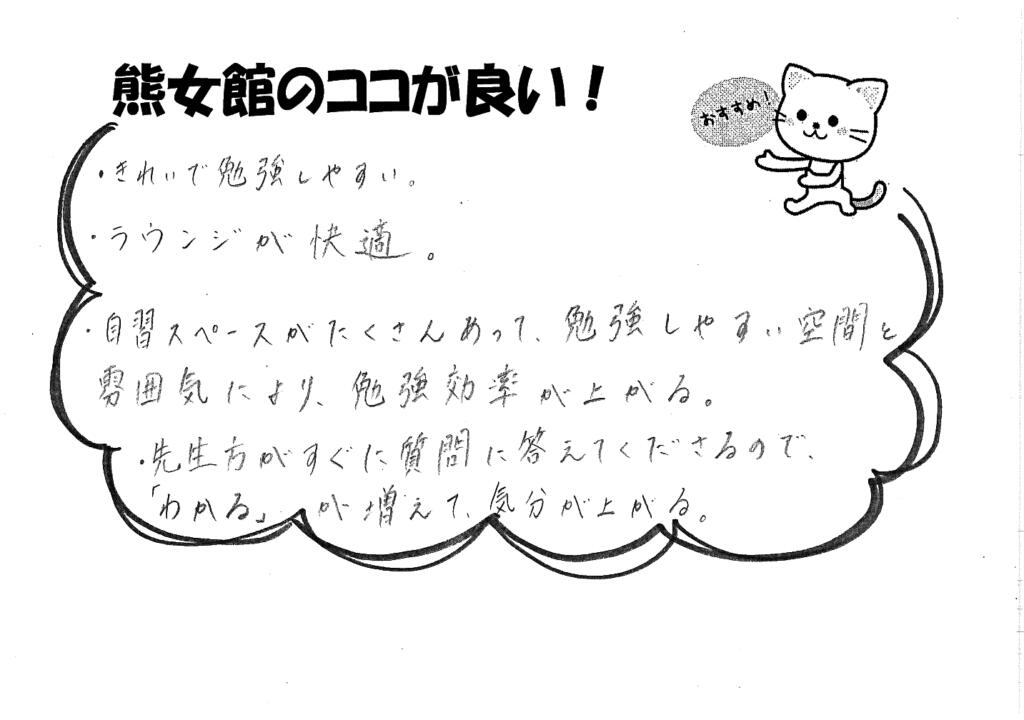 熊女館のココが良い！
おすすめ！
・きれいで勉強しやすい。
・ラウンジが快適。
・自習スペースがたくさんあって、勉強しやすい空間と
雰囲気により、勉強効率が上がる。
・先生方がすぐに質問に答えてくださるので、
「わかる」が増えて、気分が上がる。